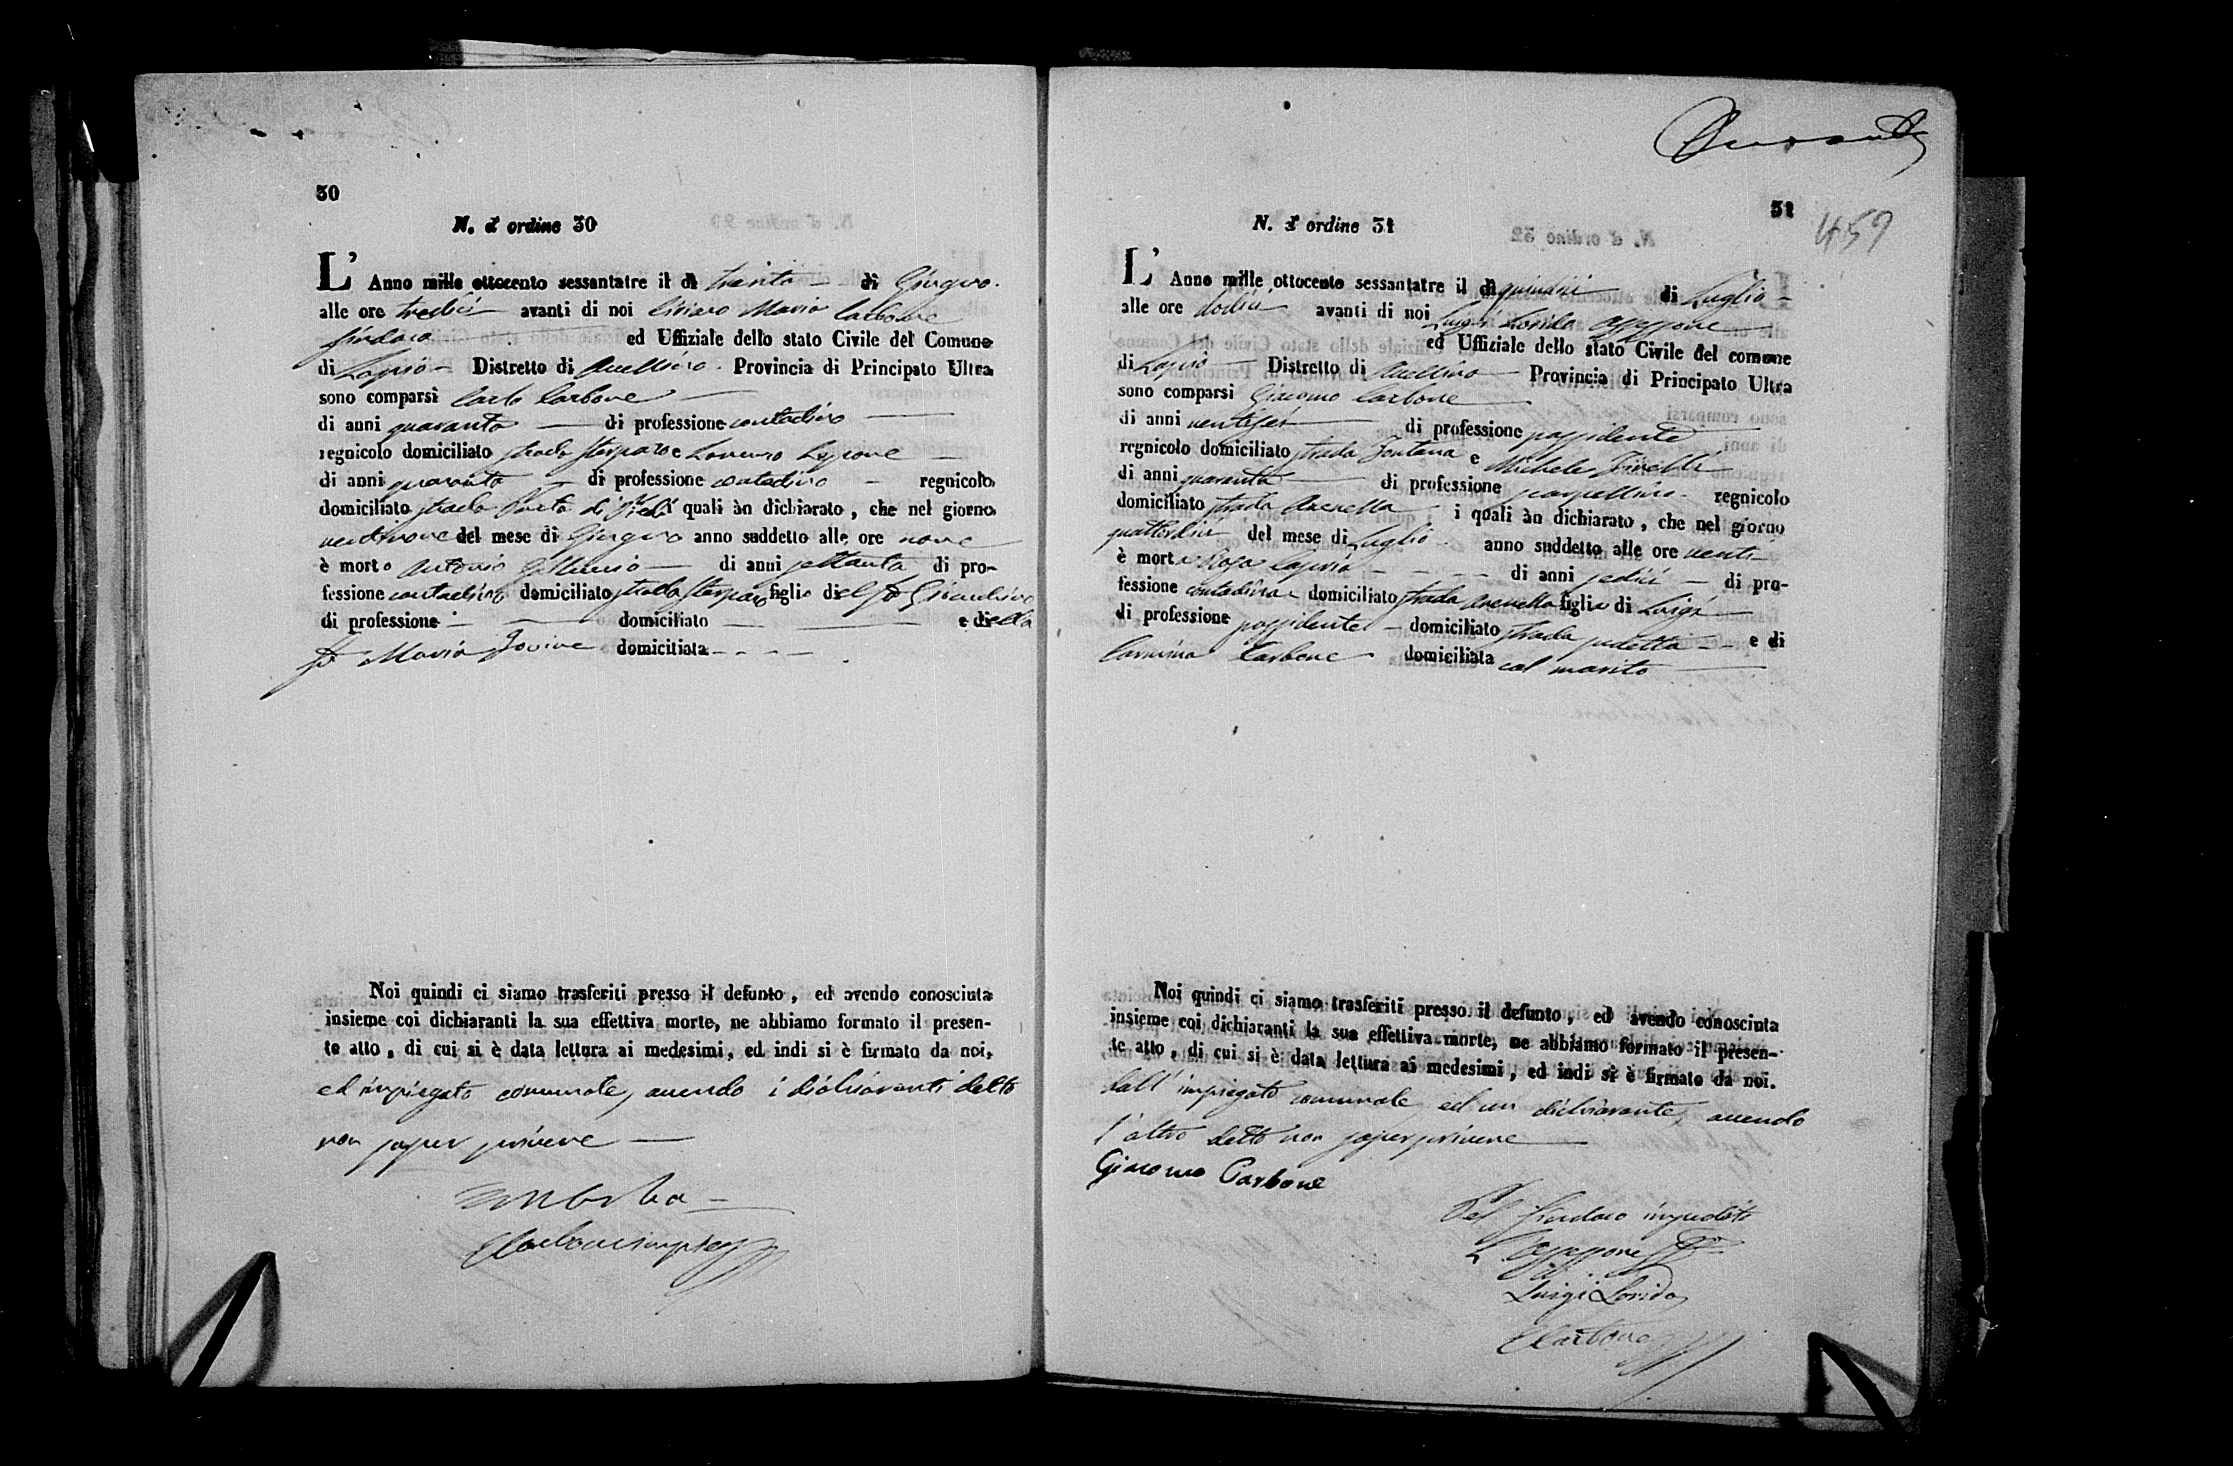 30
N. d' ordine 30
L' Anno mille ottocento sessantatre il dì trenta di Giugno
alle ore tredici avanti di noi Ciriaco Maria Carbone
Sindaco ed Uffiziale dello stato Civile del Comune
di Lapio Distretto di Avellino Provincia di Principato Ultra
sono comparsi Carlo Carbone
di anni quaranta di professione contadino
regnicolo domiciliato strada e Lorenzo
di anni quaranta di professione contadino regnicolo
domiciliato strada Porta di i quali àn dichiarato, che nel giorno
ventinove del mese di Giugno anno suddetto alle ore nove
è morto Antonio di anni settanta di pro-
fessione contadino domiciliato strada figlio del fu
di professione domiciliato e della
fu Maria Iovine domiciliata
Noi quindi ci siamo trasferiti presso il defunto, ed avendo conosciuta
insieme coi dichiaranti la sua effettiva morte, ne abbiamo formato il presen-
te atto, di cui si è data lettura ai medesimi, ed indi si è firmato da noi,
ed impiegato comunale, avendo i dichiaranti detto
non saper scrivere
31
459
N. d' ordine 31
L' Anno mille ottocento sessantatre il dì quindici di Luglio
alle ore dodici avanti di noi Luigi Lorido
ed Uffiziale dello stato Civile del comune
di Lapio Distretto di Avellino Provincia di Principato Ultra
sono comparsi Giacomo Carbone
di anni ventisei di professione possidente
regnicolo domiciliato strada Fontana e Michele
di anni quaranta di professione scarpellino regnicolo
domiciliato strada Arenella i quali àn dichiarato, che nel giorno
quattordici del mese di Luglio anno suddetto alle ore venti
è morta Rosa di anni sedici di pro-
fessione contadina domiciliato strada Arenella figlia di Luigi
di professione possidente domiciliato strada sudetta e di
Carmina Carbone domiciliata col marito
Noi quindi ci siamo trasferiti presso il defunto, ed avendo conosciuta
insieme coi dichiaranti la sua effettiva morte, ne abbiamo formato il presen-
te atto, di cui si è data lettura ai medesimi, ed indi si è firmato da noi.
dall' impiegato comunale ed un dichiarante, avendo
l'altro detto non saper scrivere
Giacomo Carbone
Pel Sindaco impedito
Luigi Lorido
Carbone